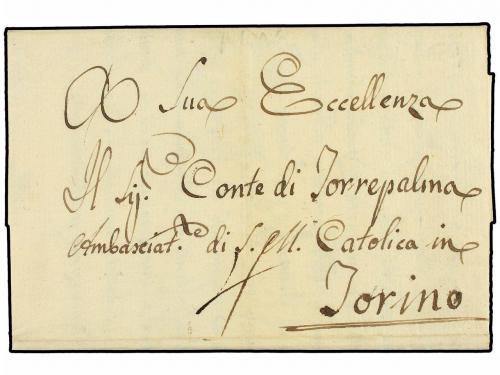 A Sua Eccellenza
Il Sig.re Conte di Torrepalma
Ambasciat.re di S. M. Catolica in
Torino